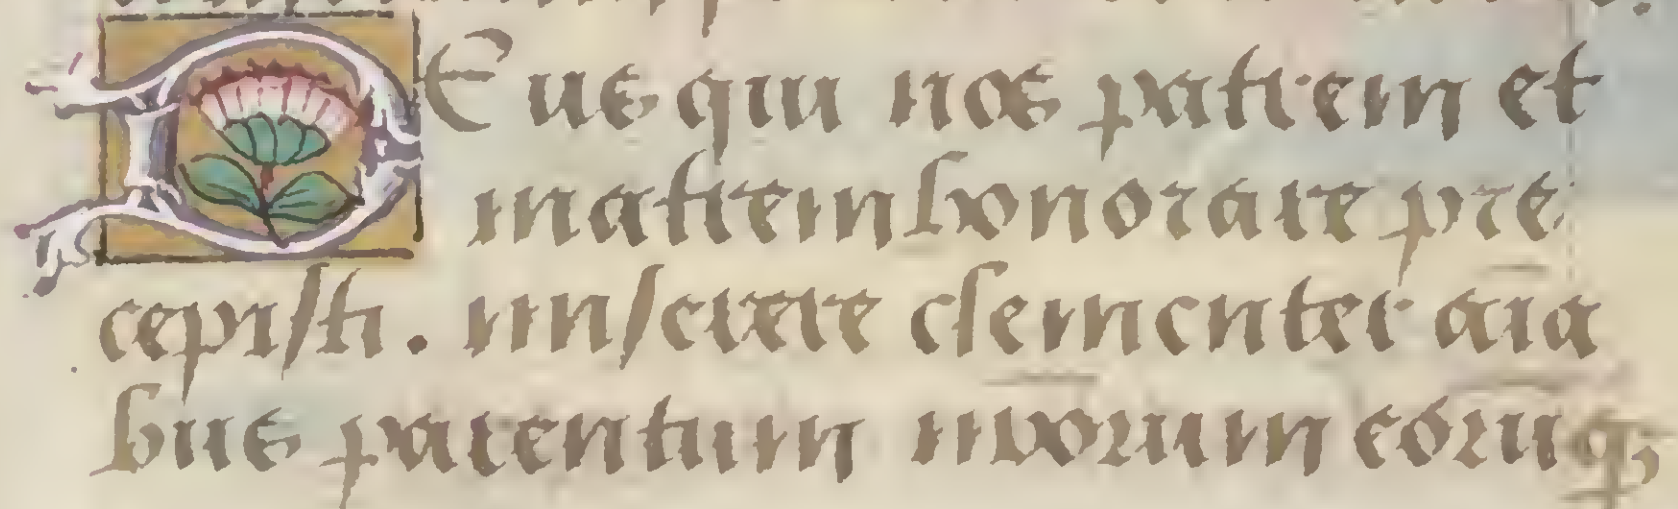 DEus qui nos patrem et
matrem honorare pre
cepisti. miserere clementer aīa
bus parentum meorum eorūq;